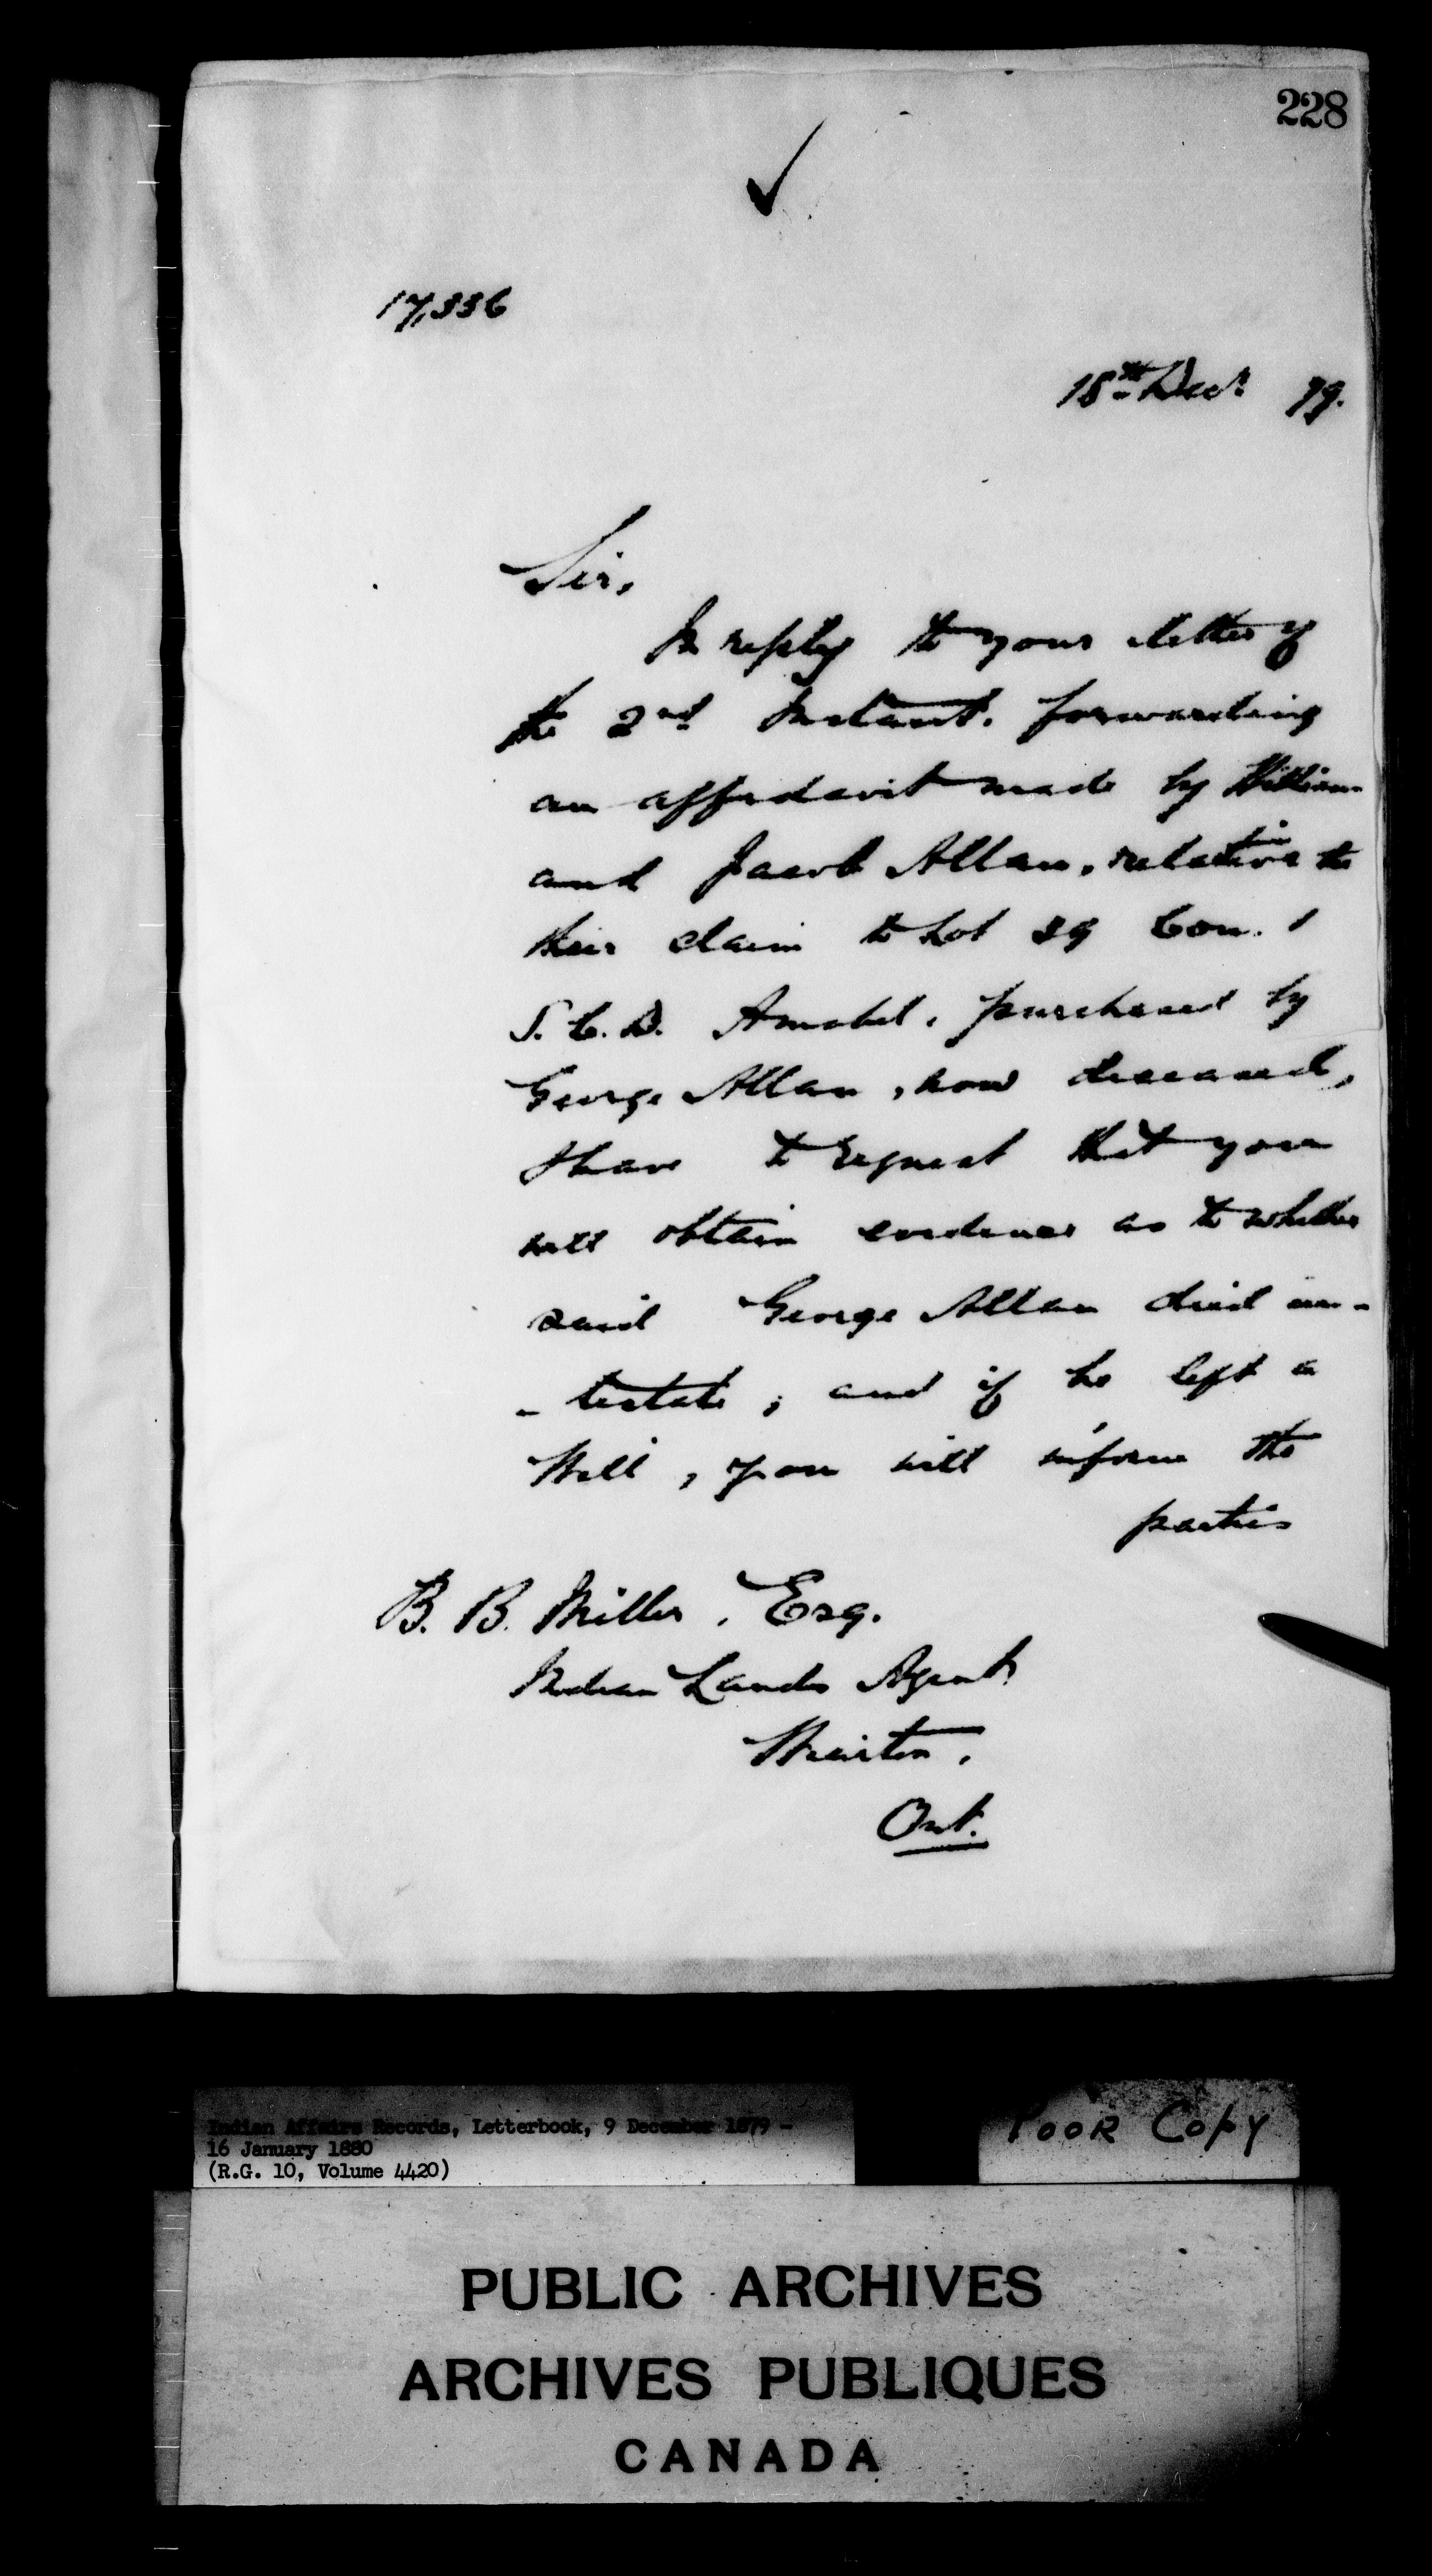 228
17,336
18th Decr 79.
Sir,
In reply to your letter of
the 2nd Instant. forwarding
an affidavit made by William
and Jacob Allan, relative to
their claim to Lot 39 Con. 1
S. C. D. Amabel, purchased by
George Allan, now deceased,
I have to request that you
will obtain evidence as to whether
said George Allan died in-
- testate; and if he left a
Will, you will inform the
parties
B. B. Miller, Esq.
Indian Lands Agent
Wiarton,
Ont.
Indian Affairs Records, Letterbook, 9 December 1879 -
16 January 1880
(R.G. 10, Volume 4420)
POOR COPY
PUBLIC ARCHIVES
ARCHIVES PUBLIQUES
CANADA